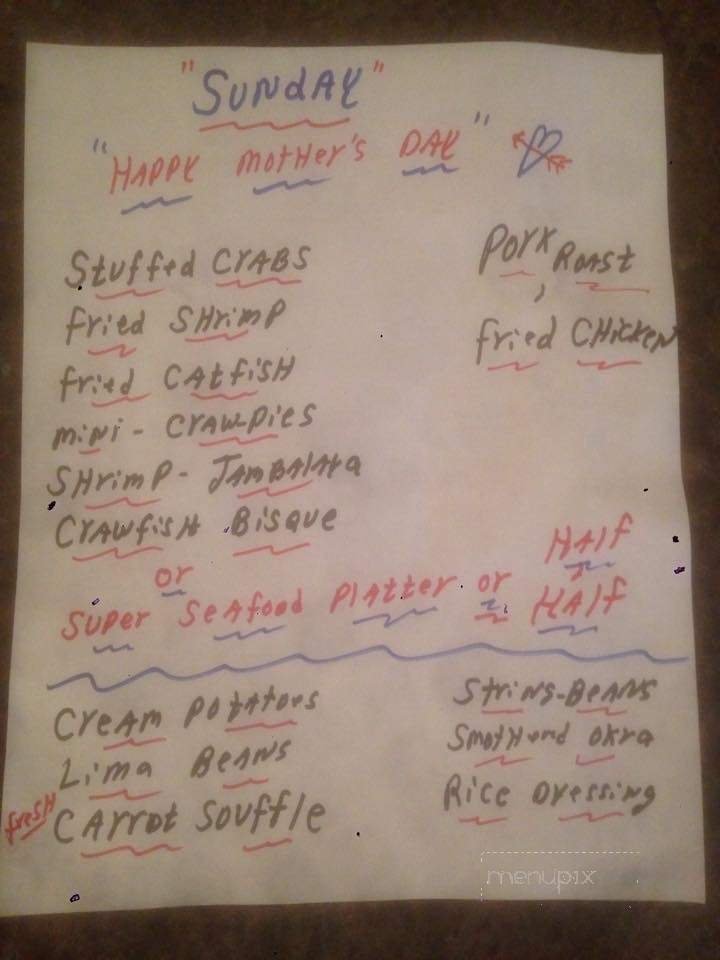 "SUNDAY"
"HAPPY MOTHER'S DAY"
Stuffed CRABS
Pork ROAST
fried SHRIMP
fried CHICKEN
fried CATFISH
MINI - CRAWPIES
SHRIMP - JAMBALAYA
CRAWFISH BISQUE
or
SUPER SEAFOOD PLATTER or HALF
HALF
CREAM POTATOES
STRING-BEANS
LIMA BEANS
SMOTHERED OKRA
fresh CARROT SOUFFLE
RICE DRESSING
menupix